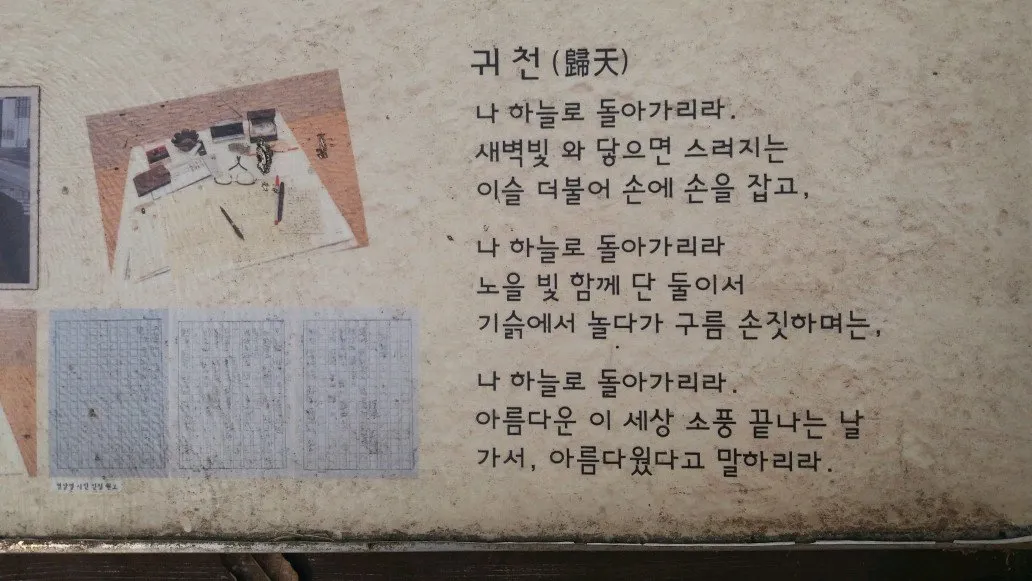 귀 천 (歸天)
나 하늘로 돌아가리라.
새벽빛 와 닿으면 스러지는
이슬 더불어 손에 손을 잡고,
나 하늘로 돌아가리라
노을 빛 함께 단 둘이서
기슭에서 놀다가 구름 손짓하며는,
나 하늘로 돌아가리라.
아름다운 이 세상 소풍 끝나는 날
가서, 아름다웠다고 말하리라.